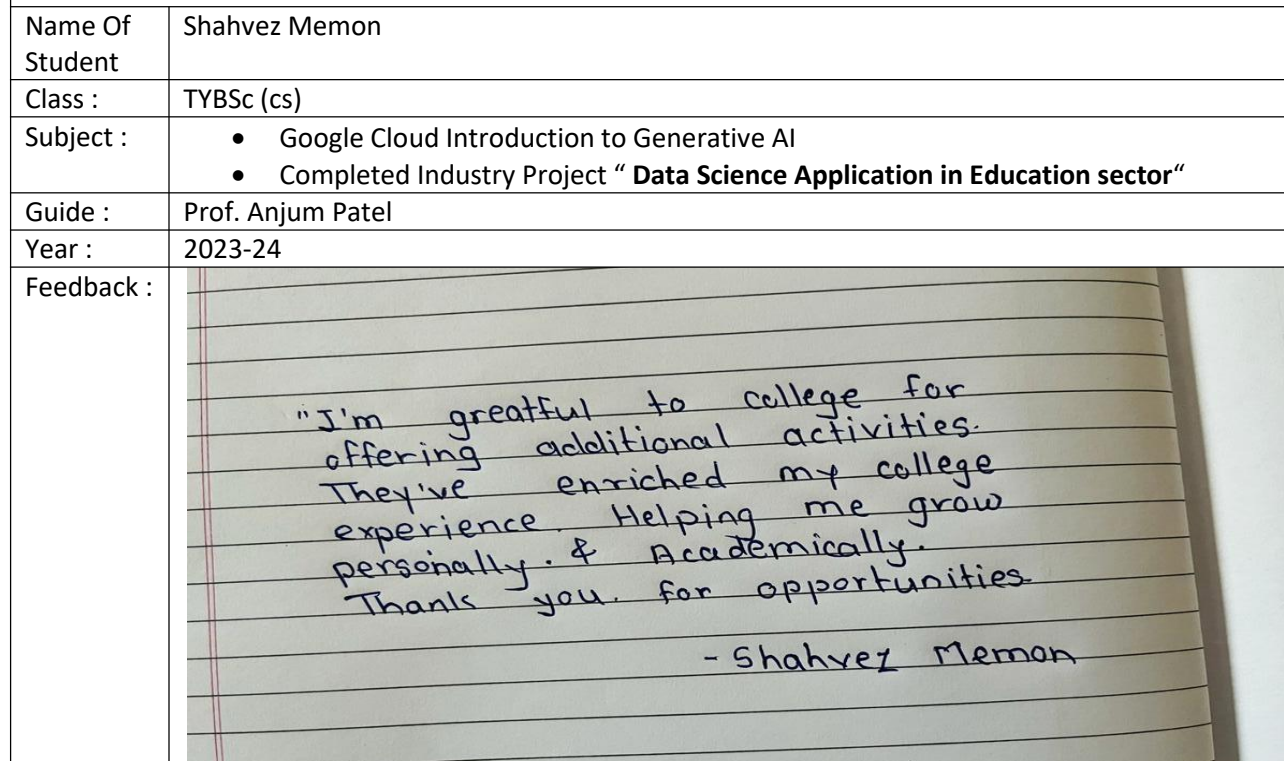 Name Of
Student
Shahvez Memon
Class :
TYBSc (cs)
Subject :
• Google Cloud Introduction to Generative AI
• Completed Industry Project “ Data Science Application in Education sector“
Guide :
Prof. Anjum Patel
Year :
2023-24
Feedback :
"I'm greatful to college for
offering additional activities.
They've enriched my college
experience. Helping me grow
personally. & Academically.
Thank you. for opportunities
- Shahvez Memon